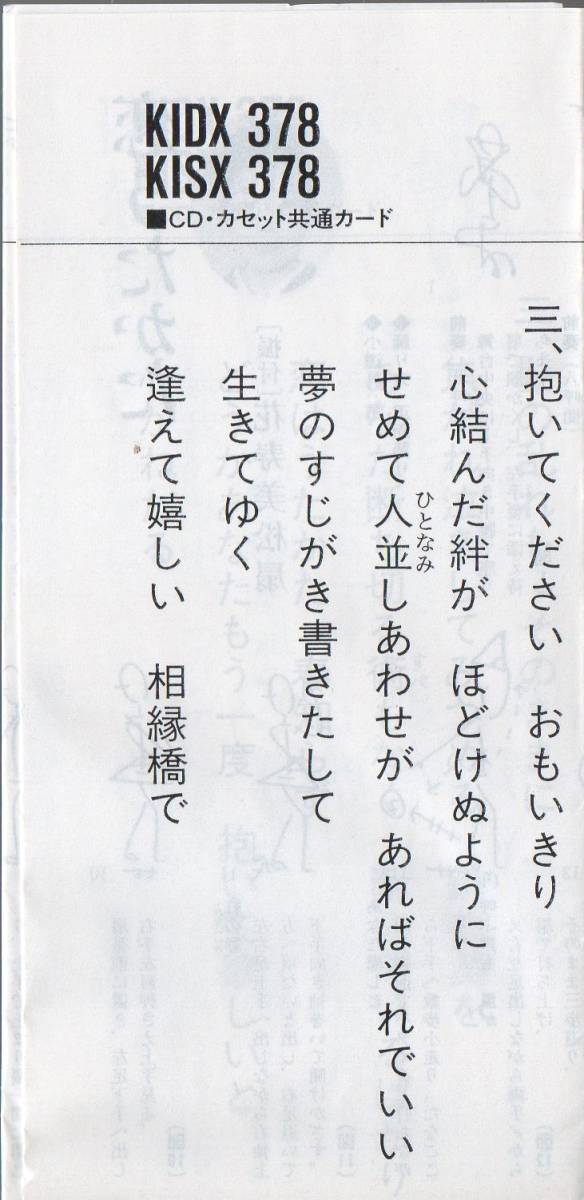 KIDX 378
KISX 378
■CD・カセット共通カード
三、抱いてください　おもいきり
心結んだ絆が　ほどけぬように
せめて人並しあわせが　あればそれでいい
ひとなみ
夢のすじがき書きたして
生きてゆく
逢えて嬉しい　相縁橋で